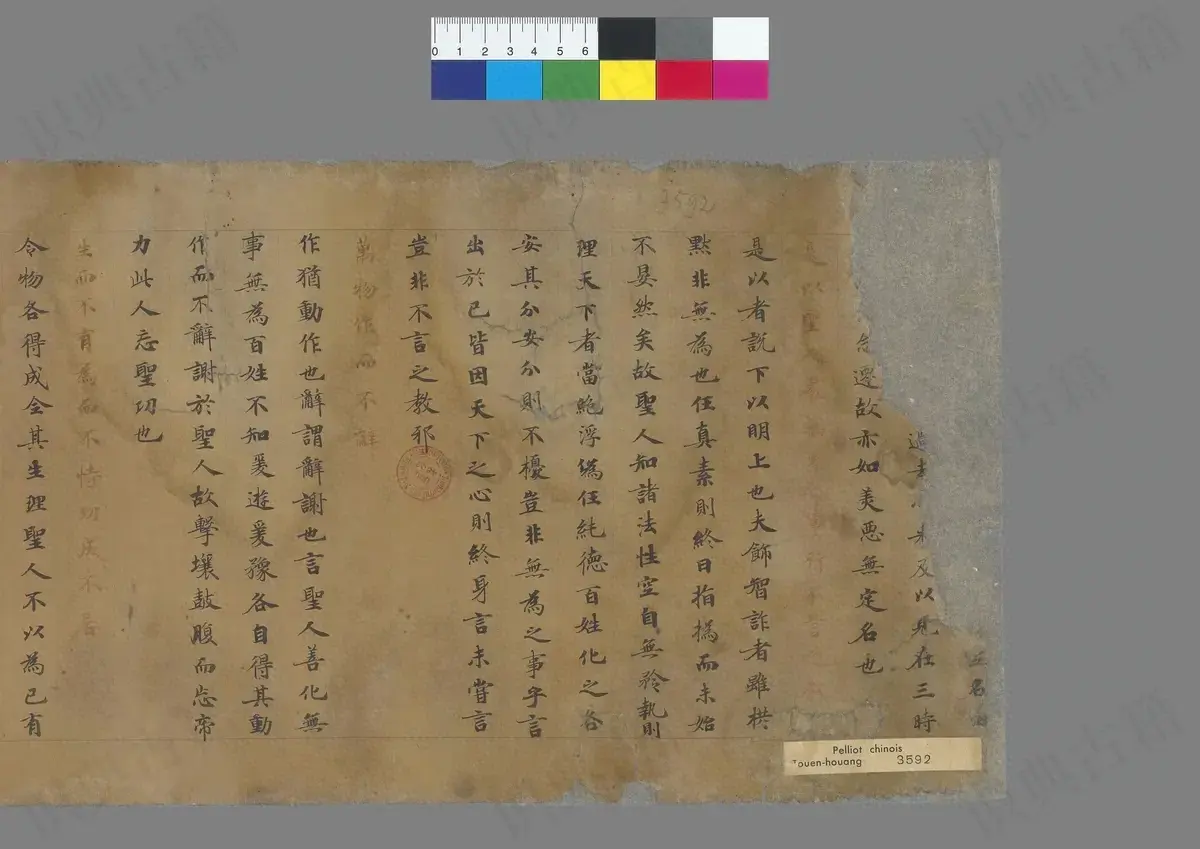 五名
過去未来及以見在三時
念遷故亦如美惡無定名也
是以聖人處無為之事行不言之教
是以者說下以明上也夫飾智詐者雖拱
黙非無為也任真素則終日指撝而未始
不晏然矣故聖人知諸法性空自無矜執則
理天下者當絁浮偽任純德百姓化之各
安其分安分則不擾豈非無為之事乎言
出於己皆因天下之心則終身言未甞言
豈非不言之教邪
萬物作而不辭
作猶動作也辭謂辭謝也言聖人善化無
事無為百姓不知爰遊爰豫各自得其動
作而不辭謝於聖人故擊壤鼓腹而忘帝
力此人忘聖功也
生而不有為而不恃功成不居
令物各得成全其生理聖人不以為己有
3592
Pelliot chinois
Touen-houang 3592
0 1 2 3 4 5 6
识典古籍